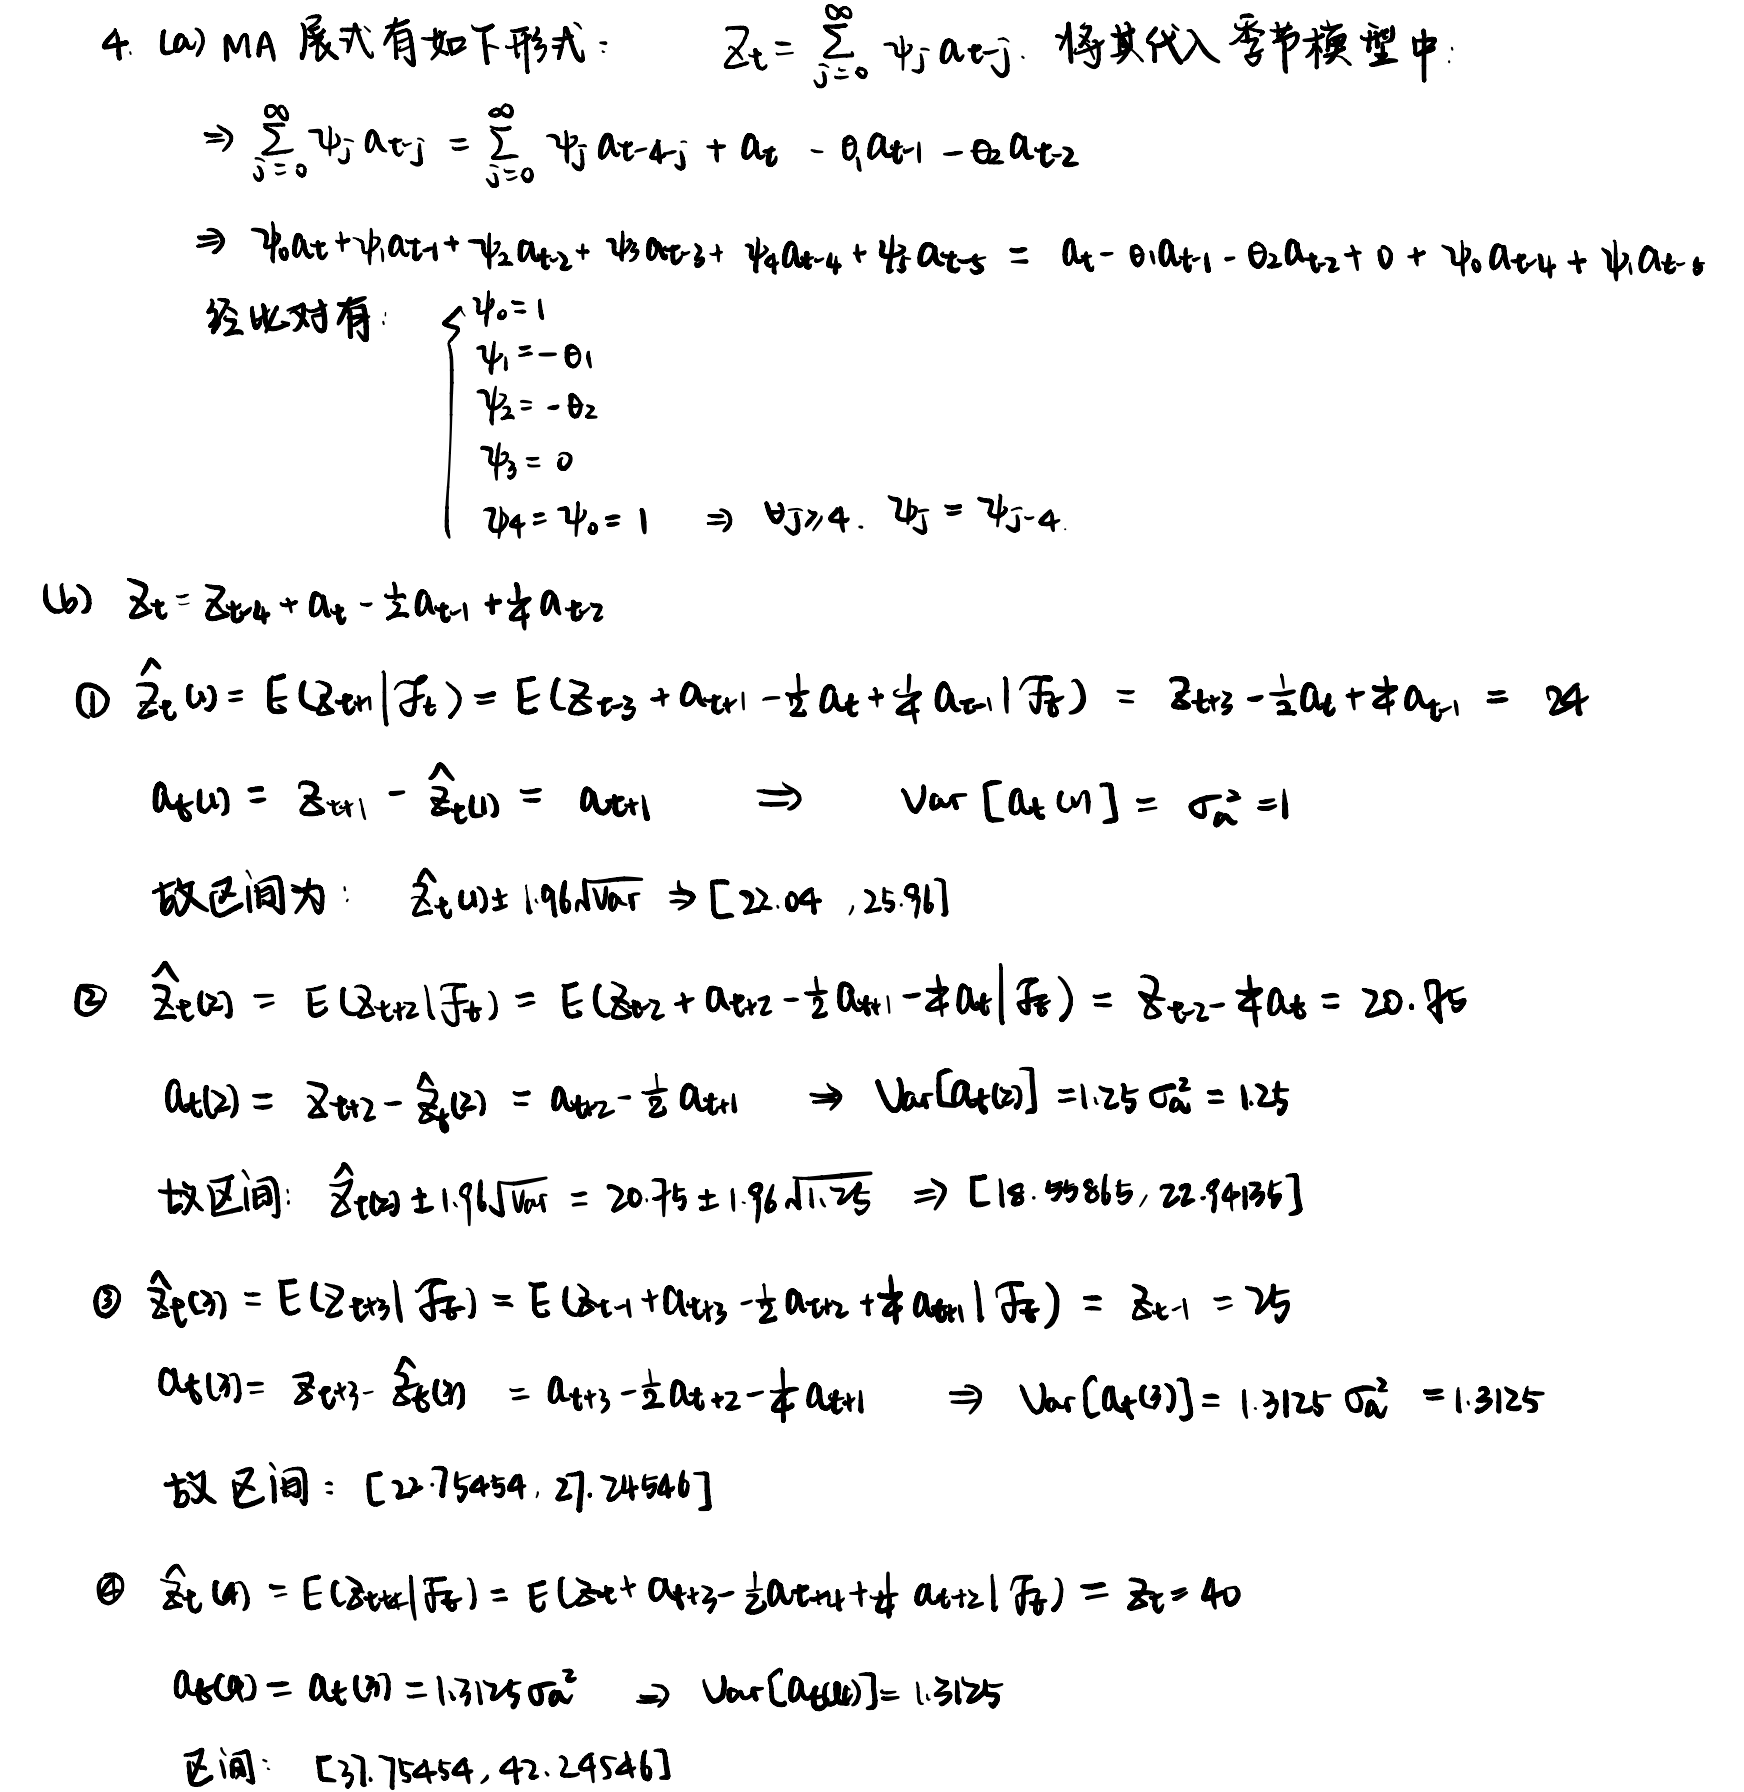 4. (a) MA 展式有如下形式: Z_t = ∑_{j=0}^{∞} ψ_j a_{t-j}. 将其代入季节模型中:
⇒ ∑_{j=0}^{∞} ψ_j a_{t-j} = ∑_{j=0}^{∞} ψ_j a_{t-4-j} + a_t - θ_1 a_{t-1} - θ_2 a_{t-2}
⇒ ψ_0 a_t + ψ_1 a_{t-1} + ψ_2 a_{t-2} + ψ_3 a_{t-3} + ψ_4 a_{t-4} + ψ_5 a_{t-5} = a_t - θ_1 a_{t-1} - θ_2 a_{t-2} + 0 + ψ_0 a_{t-4} + ψ_1 a_{t-5}
经比对有: { ψ_0 = 1
ψ_1 = -θ_1
ψ_2 = -θ_2
ψ_3 = 0
ψ_4 = ψ_0 = 1 ⇒ ∀j≥4. ψ_j = ψ_{j-4}.
(b) Z_t = Z_{t-4} + a_t - 1/2 a_{t-1} + 1/4 a_{t-2}
① Ẑ_t(1) = E(Z_{t+1}|F_t) = E(Z_{t-3} + a_{t+1} - 1/2 a_t + 1/4 a_{t-1}|F_t) = Z_{t+3} - 1/2 a_t + 1/4 a_{t-1} = 24
a_t(1) = Z_{t+1} - Ẑ_t(1) = a_{t+1} ⇒ Var[a_t(1)] = σ_a^2 = 1
故区间为: Ẑ_t(1) ± 1.96√Var ⇒ [22.04, 25.96]
② Ẑ_t(2) = E(Z_{t+2}|F_t) = E(Z_{t-2} + a_{t+2} - 1/2 a_{t+1} - 1/4 a_t|F_t) = Z_{t-2} - 1/4 a_t = 20.75
a_t(2) = Z_{t+2} - Ẑ_t(2) = a_{t+2} - 1/2 a_{t+1} ⇒ Var[a_t(2)] = 1.25 σ_a^2 = 1.25
故区间: Ẑ_t(2) ± 1.96√Var = 20.75 ± 1.96√1.25 ⇒ [18.55865, 22.94135]
③ Ẑ_t(3) = E(Z_{t+3}|F_t) = E(Z_{t-1} + a_{t+3} - 1/2 a_{t+2} + 1/4 a_{t+1}|F_t) = Z_{t-1} = 25
a_t(3) = Z_{t+3} - Ẑ_t(3) = a_{t+3} - 1/2 a_{t+2} - 1/4 a_{t+1} ⇒ Var[a_t(3)] = 1.3125 σ_a^2 = 1.3125
故区间: [22.75454, 27.24546]
④ Ẑ_t(4) = E(Z_{t+4}|F_t) = E(Z_t + a_{t+3} - 1/2 a_{t+4} + 1/4 a_{t+2}|F_t) = Z_t = 40
a_t(4) = a_t(3) = 1.3125 σ_a^2 ⇒ Var[a_t(4)] = 1.3125
区间: [37.75454, 42.24546]